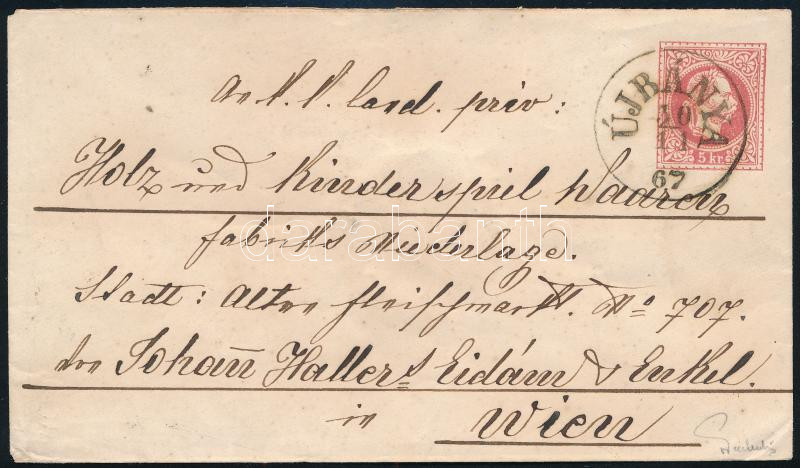 ÚJBÁNYA
10
67
5 kr.
An k. k. land. priv:
Holz und Kinderspiel Waaren
fabriks Niederlage.
darabanth
Stadt: Alten fleischmarkt. No 707.
Johañ Haller's Eidám & Enkel.
in
Wien